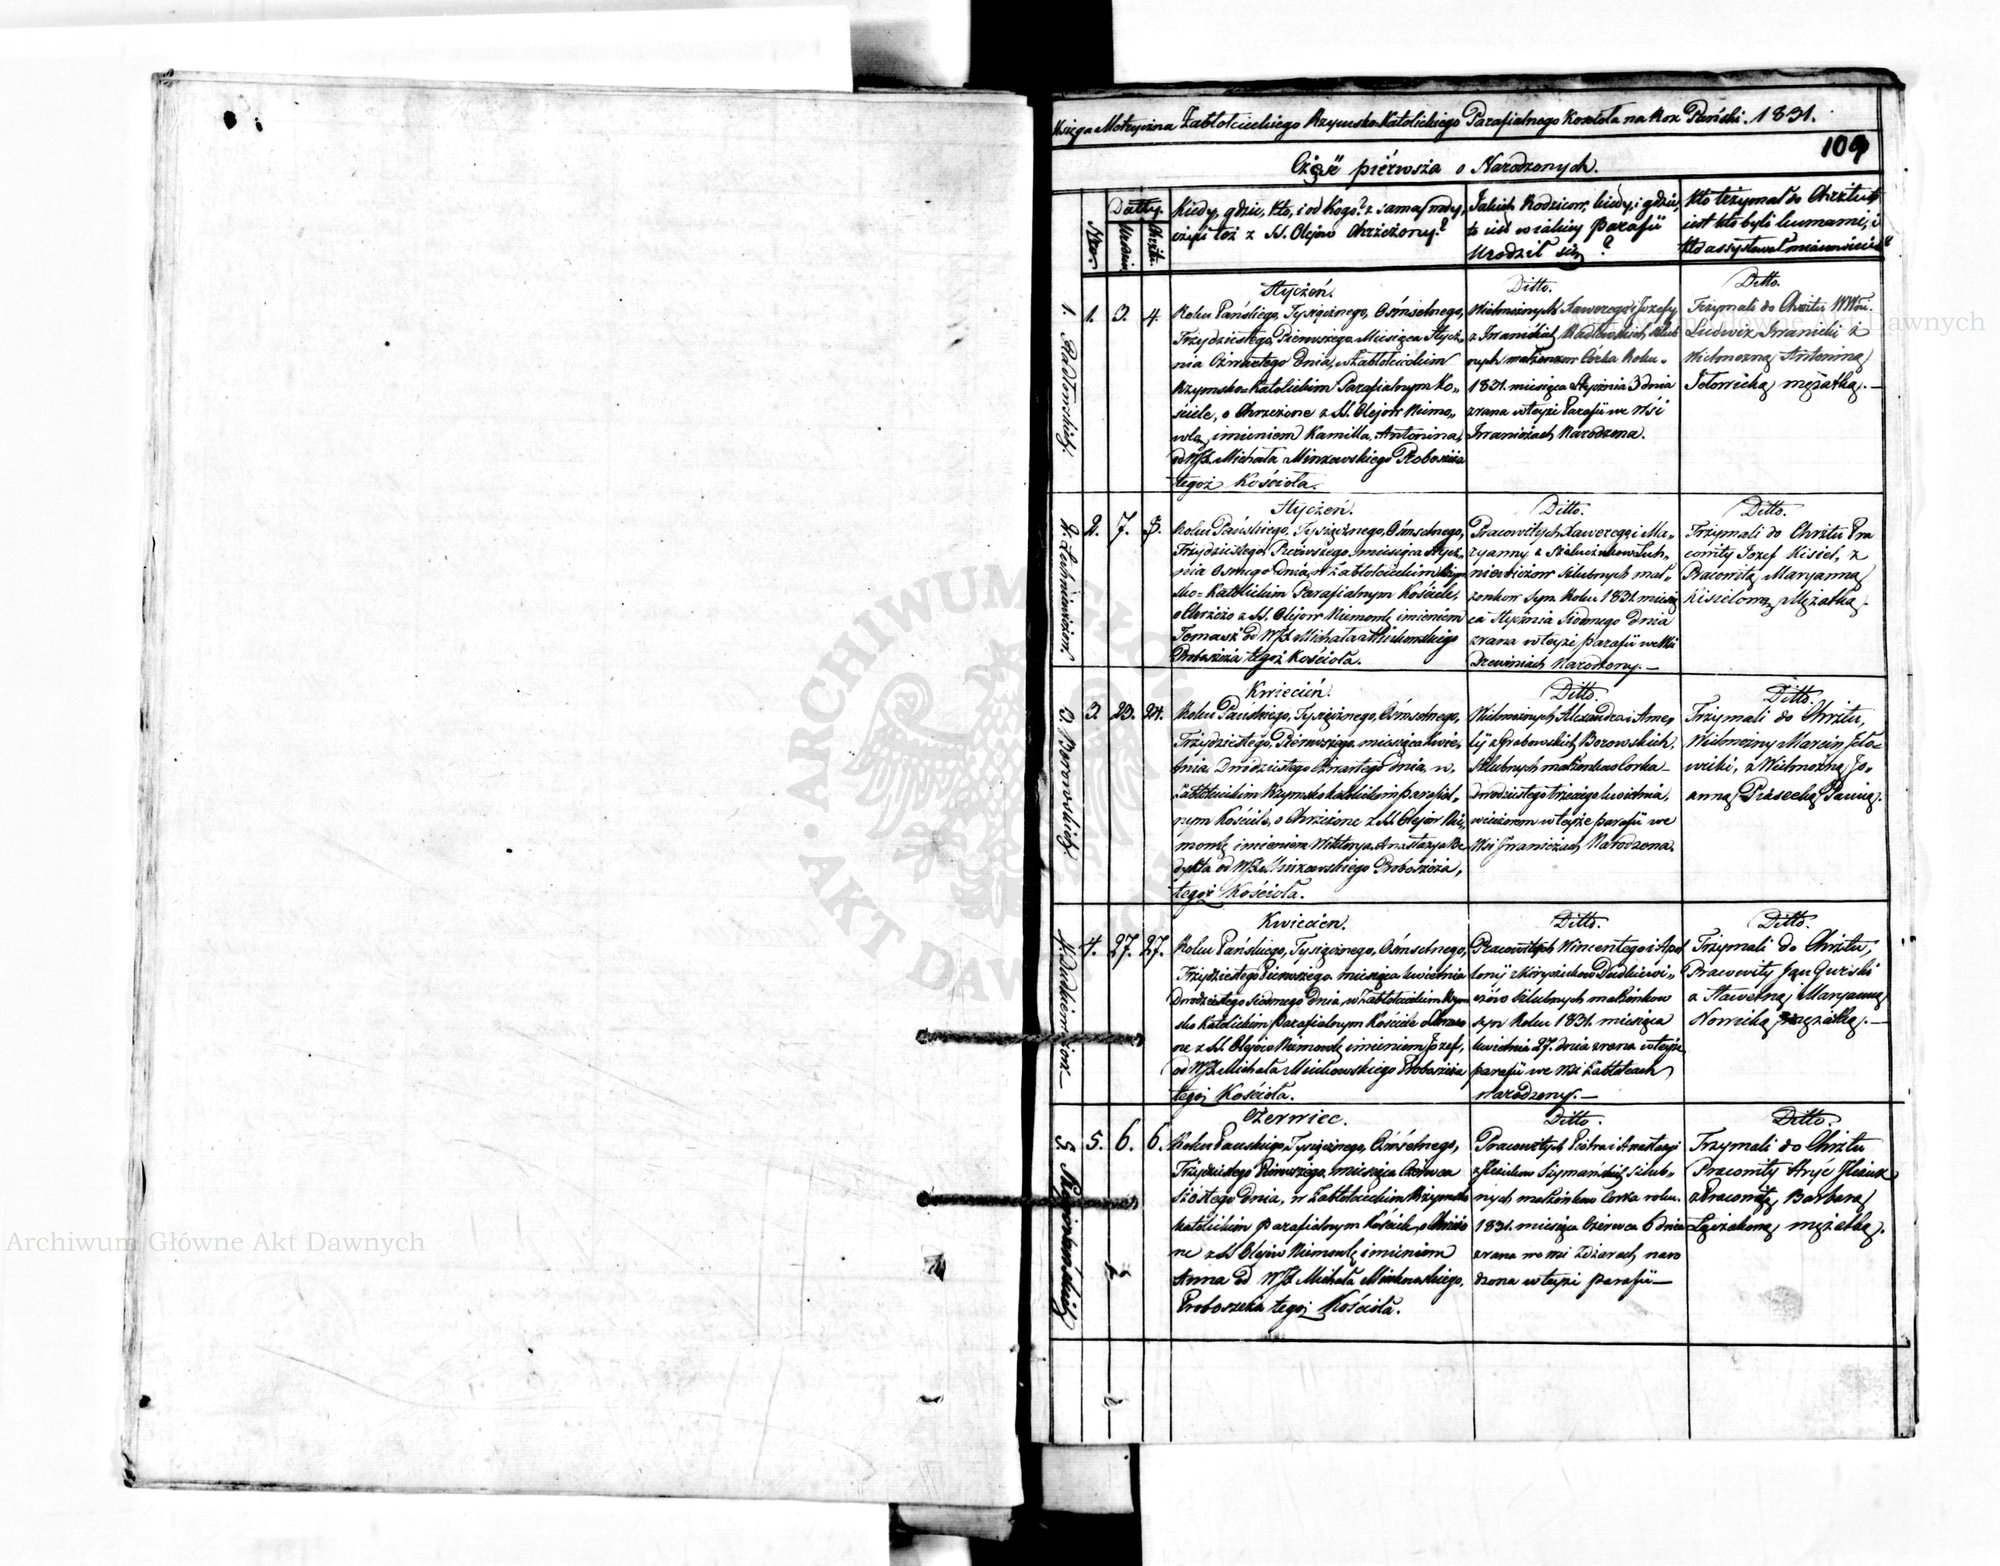 Księga Metryczna Zabłocieckiego Rzymsko-Katolickiego Parafialnego Kościoła na Rok Pański. 1831.
109
Część pierwsza o Narodzonych.
Nro.
Datty.
Urodzin
Chrztu
Kiedy, gdzie, kto, i od Kogo? z samej wody,
czyli też z SS. Olejów Chrzczony?
Jakich Rodziców, kiedy, i gdzie,
to jest w jakiey parafii
Urodził się?
Kto trzymał do Chrztu to
jest kto byli kumami, i
kto assystował mianowicie?
1.
1. 3. 4.
Styczeń.
Roku Pańskiego, Tysiącznego, Ośmsetnego,
Trzydziestego, Pierwszego Miesiąca Stycz-
nia Czwartego Dnia, w Zabłocieckim
Rzymsko-Katolickim Parafialnym Ko-
ściele, o Chrzczone z SS. Olejów Niemo-
wlę, imieniem Kamilla, Antonina,
od WJX Michała Mirkowskiego Proboszcza
tegoż Kościoła.
Ditto.
Wielmożnych Xawerego i Jozefy
z Iwanickich
małżonków Córka Roku
1831. miesiąca Stycznia 3 dnia
zrana w teyże Parafii we Wsi
Iwaniczach Narodzona.
Ditto.
Trzymali do Chrztu WW
Ludwik Iwanicki z
Wielmożną Antoniną
Jełowicką mężatką.—
2.
2. 7. 8.
Styczeń.
Roku Pańskiego, Tysiącznego, Ośmsetnego,
Trzydziestego, Pierwszego, miesiąca Stycz-
nia Osmego Dnia, w Zabłocieckim Rzym
sko-Katolickim Parafialnym Kościele,
o Chrzczo z SS. Olejów Niemowlę imieniem
Tomasz od WJX Michała Mirkowskiego
Proboszcza tegoż Kościoła.
Ditto.
Pracowitych Xawerego i Ma-
ryanny z
ślubnych mał-
żonków Syn Roku 1831 miesią
ca Stycznia Siodmego dnia
zrana w teyże parafii we Wsi
Narodzony.—
Ditto.
Trzymali do Chrztu Pra
cowity Jozef Kisiel, z
Pracowitą Maryanną
Kisielową Mężatką.
3. Borowskich
3. 23. 24.
Kwiecień.
Roku Pańskiego, Tysiącznego, Ośmsetnego,
Trzydziestego, Pierwszego miesiąca Kwie-
tnia, Dwudziestego Czwartego dnia, w
Zabłocieckim Rzymsko katolickim parafial-
nym Kościele, o Chrzczone z SS. Olejów Nie-
mowlę imieniem Wiktorya, Anastazya Be
dykta od WJX Mirkowskiego Proboszcza,
tegoż Kościoła.
Ditto.
Wielmożnych Alexandra i Ame-
lij z Grabowskich Borowskich,
Szlubnych małżonków Corka
Dwudziestego trzeciego kwietnia,
wieczorem w teyże parafii we
Wsi Iwaniczach Narodzona.
Ditto.
Trzymali do Chrztu,
Wielmożny Marcin Jeło-
wicki, z Wielmożną Jo-
anną Panną.
4. Dudkiewiczow—
4. 27. 27.
Kwiecien.
Roku Pańskiego, Tysiącznego, Ośmsetnego,
Trzydziestego Pierwszego miesiąca kwietnia
Dwudziestego siodmego Dnia, w Zabłocieckim Rzym
sko Katolickim parafialnym Kościele o Chrzczo
ne z SS. Olejów Niemowlę imieniem Jozef,
od WJX Michała Mirkowskiego Proboszcza
tegoż Kościoła.
Ditto.
Pracowitych Wincentego i Apol
lonij Dudkiewi-
czów szlubnych małżonkow
syn Roku 1831. miesiąca
kwietnia 27. dnia zrana w teyże
parafii we Wsi Zabłotcach
narodzony.—
Ditto.
Trzymali do Chrztu,
Pracowity Jan Gurski
z Sławetną Maryanną
Nowicką mężatką.—
5.
5. 6. 6.
Czerwiec.
Roku Pańskiego, Tysiącznego, Ośmsetnego,
Trzydziestego Pierwszego, miesiąca Czerwca
Szóstego Dnia, w Zabłocieckim Rzymsko
katolickim parafialnym Kościele, o Chrzczo
ne z SS Olejów Niemowlę imieniem
Anna od WJX Michała Mirkowskiego,
Proboszcza tegoż Kościoła.
Ditto.
Pracowitych Piotra i Anastazyi
Szymańskich szlub-
nych małżonkow Corka roku
1831. miesiąca Czerwca 6 dnia
zrana we wsi Zdżarach naro
dzona w teyże parafii—
Ditto.
Trzymali do Chrztu
Pracowity
z Pracowitą Barbarą
mężatką.
Archiwum Główne Akt Dawnych
Archiwum Główne Akt Dawnych
ARCHIWUM GŁÓWNE AKT DAWNYCH